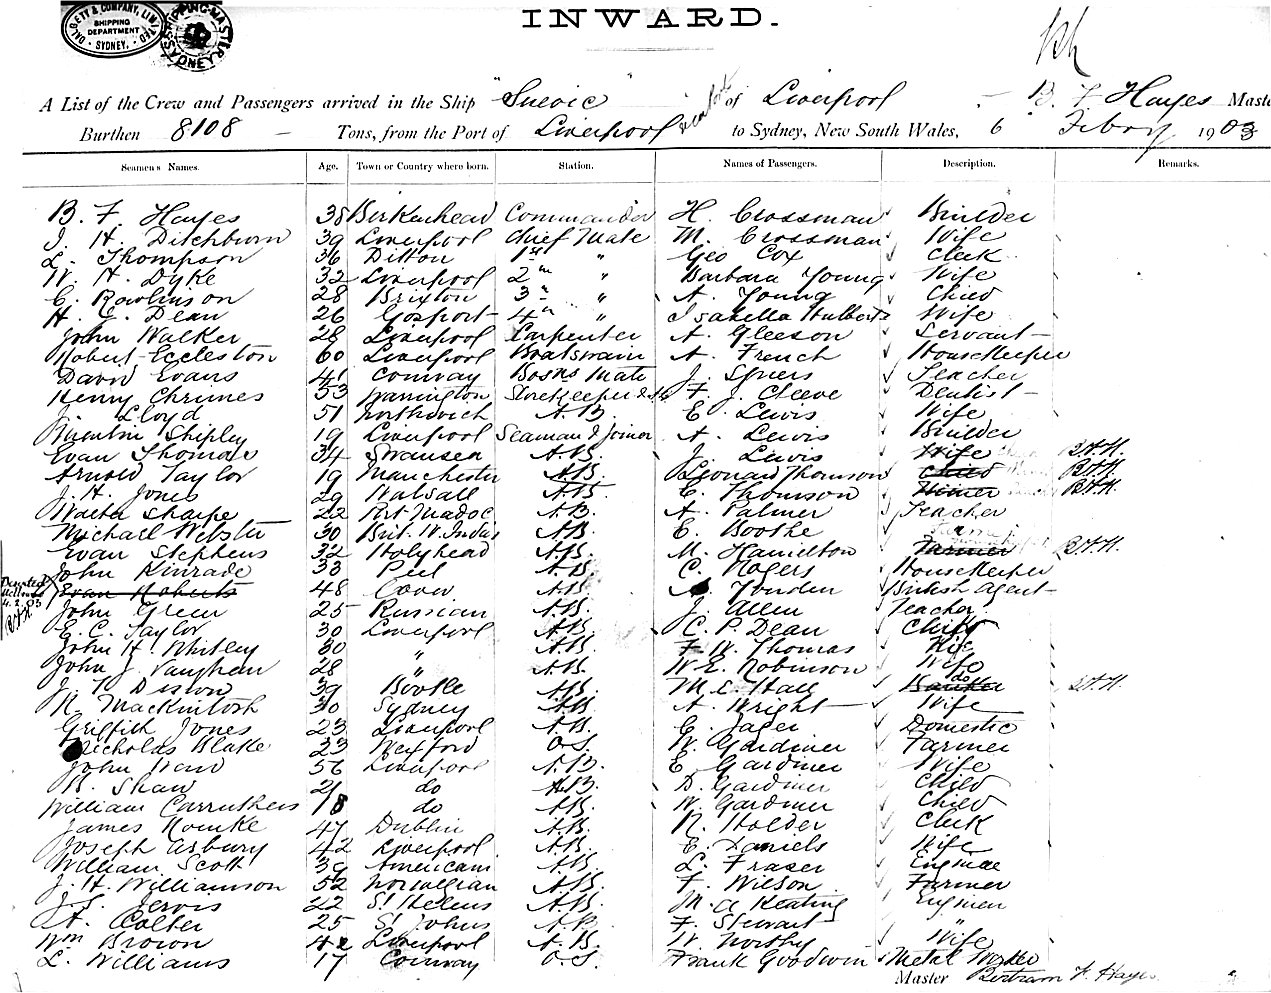 DALGETY & COMPANY, LIMITED SHIPPING DEPARTMENT SYDNEY.
SHIPPING MASTER SYDNEY
INWARD.
A List of the Crew and Passengers arrived in the Ship "Suevic" of Liverpool B. F. Hayes Maste
Burthen 8108 Tons, from the Port of Liverpool to Sydney, New South Wales, 6 Febry 1903
Seamen's Names. Age. Town or Country where born. Station. Names of Passengers. Description. Remarks.
B. F. Hayes 38 Birkenhead Commander H. Crossman Builder
J. H. Ditchburn 39 Liverpool Chief Mate M. Crossman Wife
L. Thompson 36 Ditton 1st " Geo Cox Clerk
W. H. Dyke 32 Liverpool 2nd " Barbara Young Wife
C. Rawlinson 28 Brixton 3rd " A. Young Child
H. C. Dean 26 Gosport 4th " Isabella Hulbert Wife
John Walker 28 Liverpool Carpenter A. Gleeson Servant
Robert Eccleston 60 Liverpool Boatswain A. French Housekeeper
David Evans 41 Conway Bosns Mate J. Spiers Teacher
Henry Chrimes 53 Warrington Storekeeper F. J. Cleeve Dentist
J. Lloyd 51 Northwich A.B. E. Lewis Wife
Quentin Shipley 19 Liverpool Seaman & Joiner A. Lewis Builder
Evan Thomas 34 Swansea A.B. J. Lewis Wife B.F.H.
Arnold Taylor 19 Manchester A.B. Leonard Thomson Child B.F.H.
J. H. Jones 29 Walsall A.B. C. Thomson Miner B.F.H.
Walter Sharpe 22 Port Madoc A.B. A. Palmer Teacher
Michael Webster 30 Brit. W. Indies A.B. E. Boothe
Evan Stephens 32 Holyhead A.B. M. Hamilton Farmer B.F.H.
John Kinrade 33 Peel A.B. C. Rogers Housekeeper
Deserted 4.2.03 Evan Roberts 48 A.B. British Agent
John Green 25 Russian A.B. J. Allen Teacher
E. C. Taylor 30 Liverpool A.B. C. P. Dean
John H. Whitley 30 " A.B. F. W. Thomas
John J. Vaughan 28 " A.B. W. E. Robinson Wife
Dixon 39 Bootle A.B. M. E. Hall do Banker B.F.H.
N. Mackintosh 30 Sydney A.B. A. Wright Wife
Griffith Jones 23 Liverpool A.B. C. Jager Domestic
Nicholas Blake 23 Wexford O.S. W. Gardiner Farmer
John Ward 56 Liverpool A.B. E. Gardiner Wife
W. Shaw 21 do A.B. D. Gardiner Child
William Carruthers 18 do A.B. W. Gardiner Child
James Rourke 47 Dublin A.B. N. Holder Clerk
Joseph Asbury 42 Liverpool A.B. E. Daniels Wife
William Scott 39 American A.B. L. Fraser Engineer
J. H. Williamson 52 Norwegian A.B. F. Wilson Farmer
J. S. Jervis 22 St Helens A.B. M. A. Keating Engineer
A. Colter 25 St Johns A.B. F. Stewart "
Wm Brown 42 Liverpool A.B. W. Northy Wife
L. Williams 17 Conway O.S. Frank Goodwin Metal Worker
Master Bertram F. Hayes